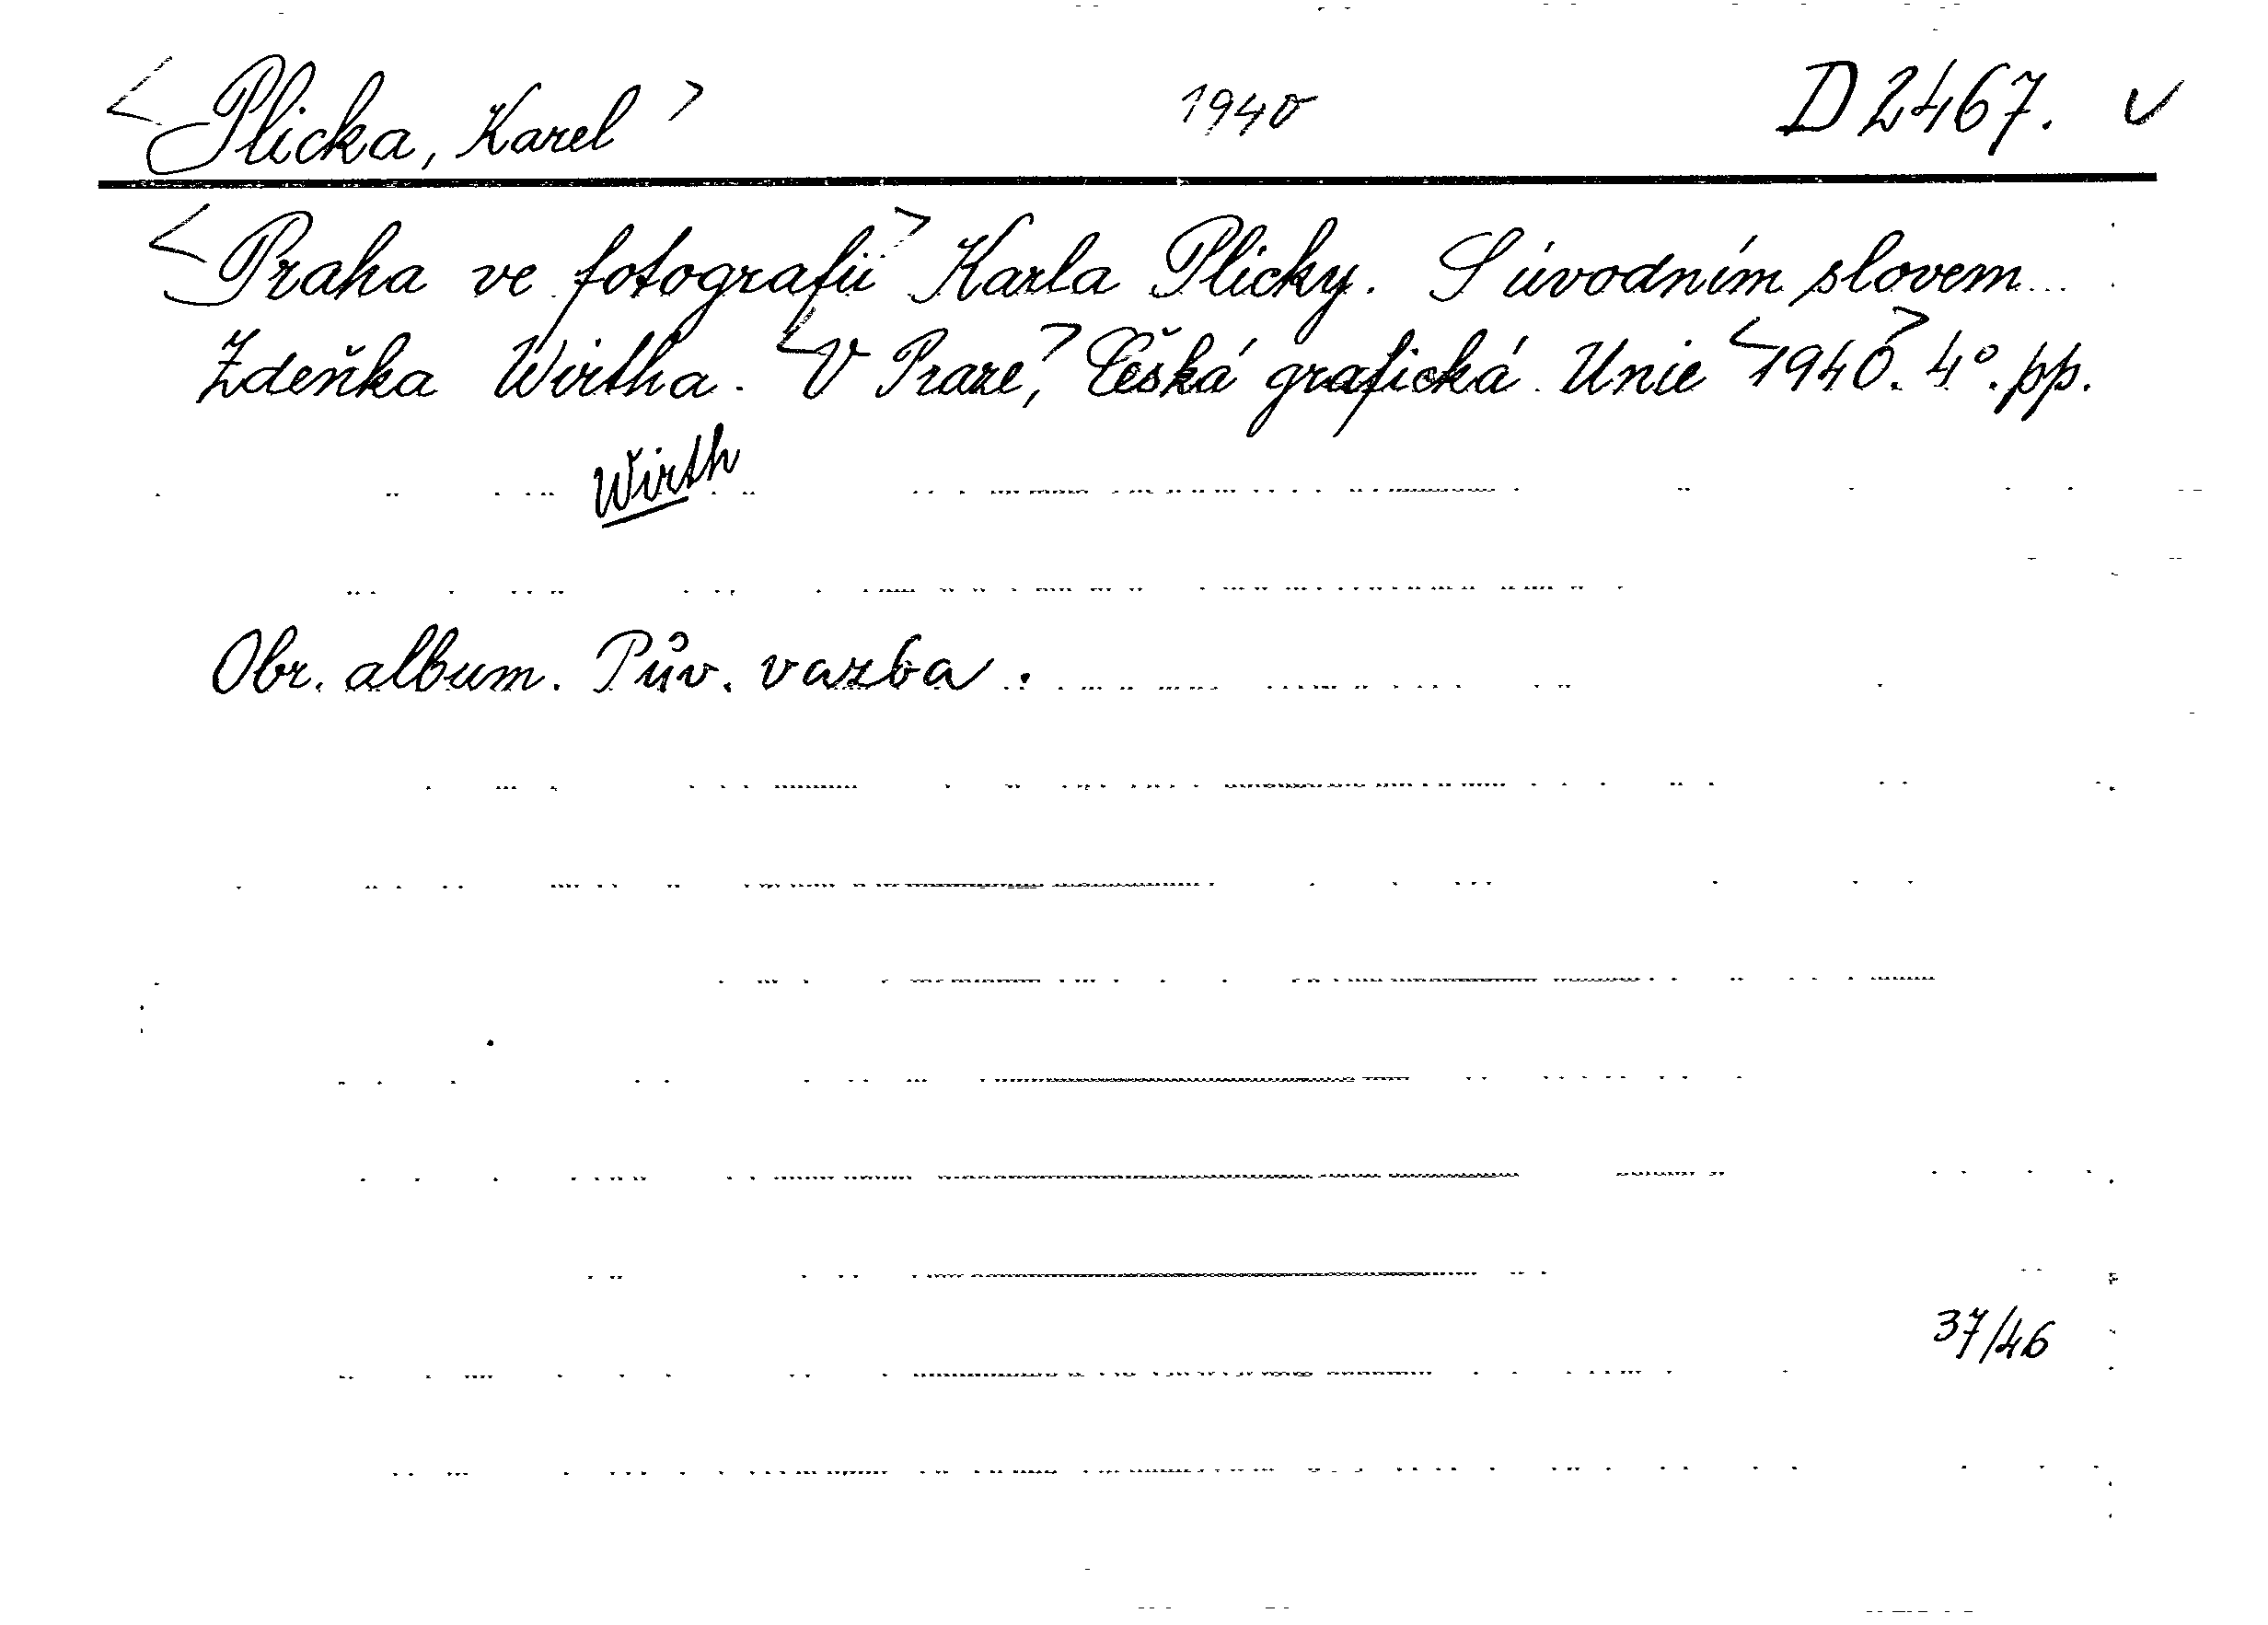 <Plicka, Karel> 1940 D 2467. v
<Praha ve fotografii> Karla Plicky. S úvodním slovem
Zdeňka Wirtha. <V Praze,> Česká grafická Unie <1940>. 4°. pp.
Wirth
Obr. album. Pův. vazba.
37/46